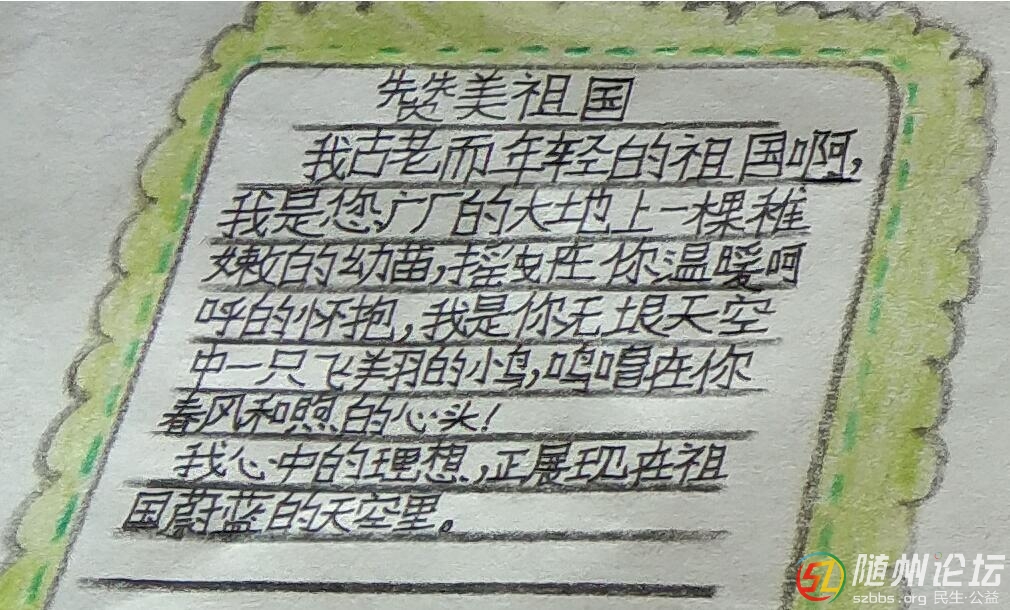 赞美祖国
我古老而年轻的祖国啊,
我是您广厂的大地上一棵稚
嫩的幼苗,摇曳在你温暖呵
呼的怀抱,我是你无垠天空
中一只飞翔的小鸟,鸣唱在你
春风和煦的心头!
我心中的理想,正展现在祖
国蔚蓝的天空里。
随州论坛
szbbs.org 民生·公益